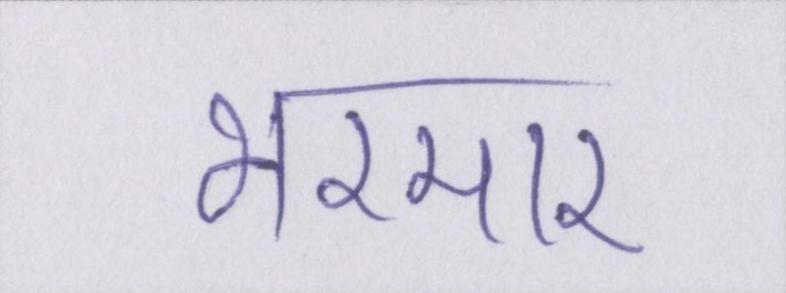 भरमार